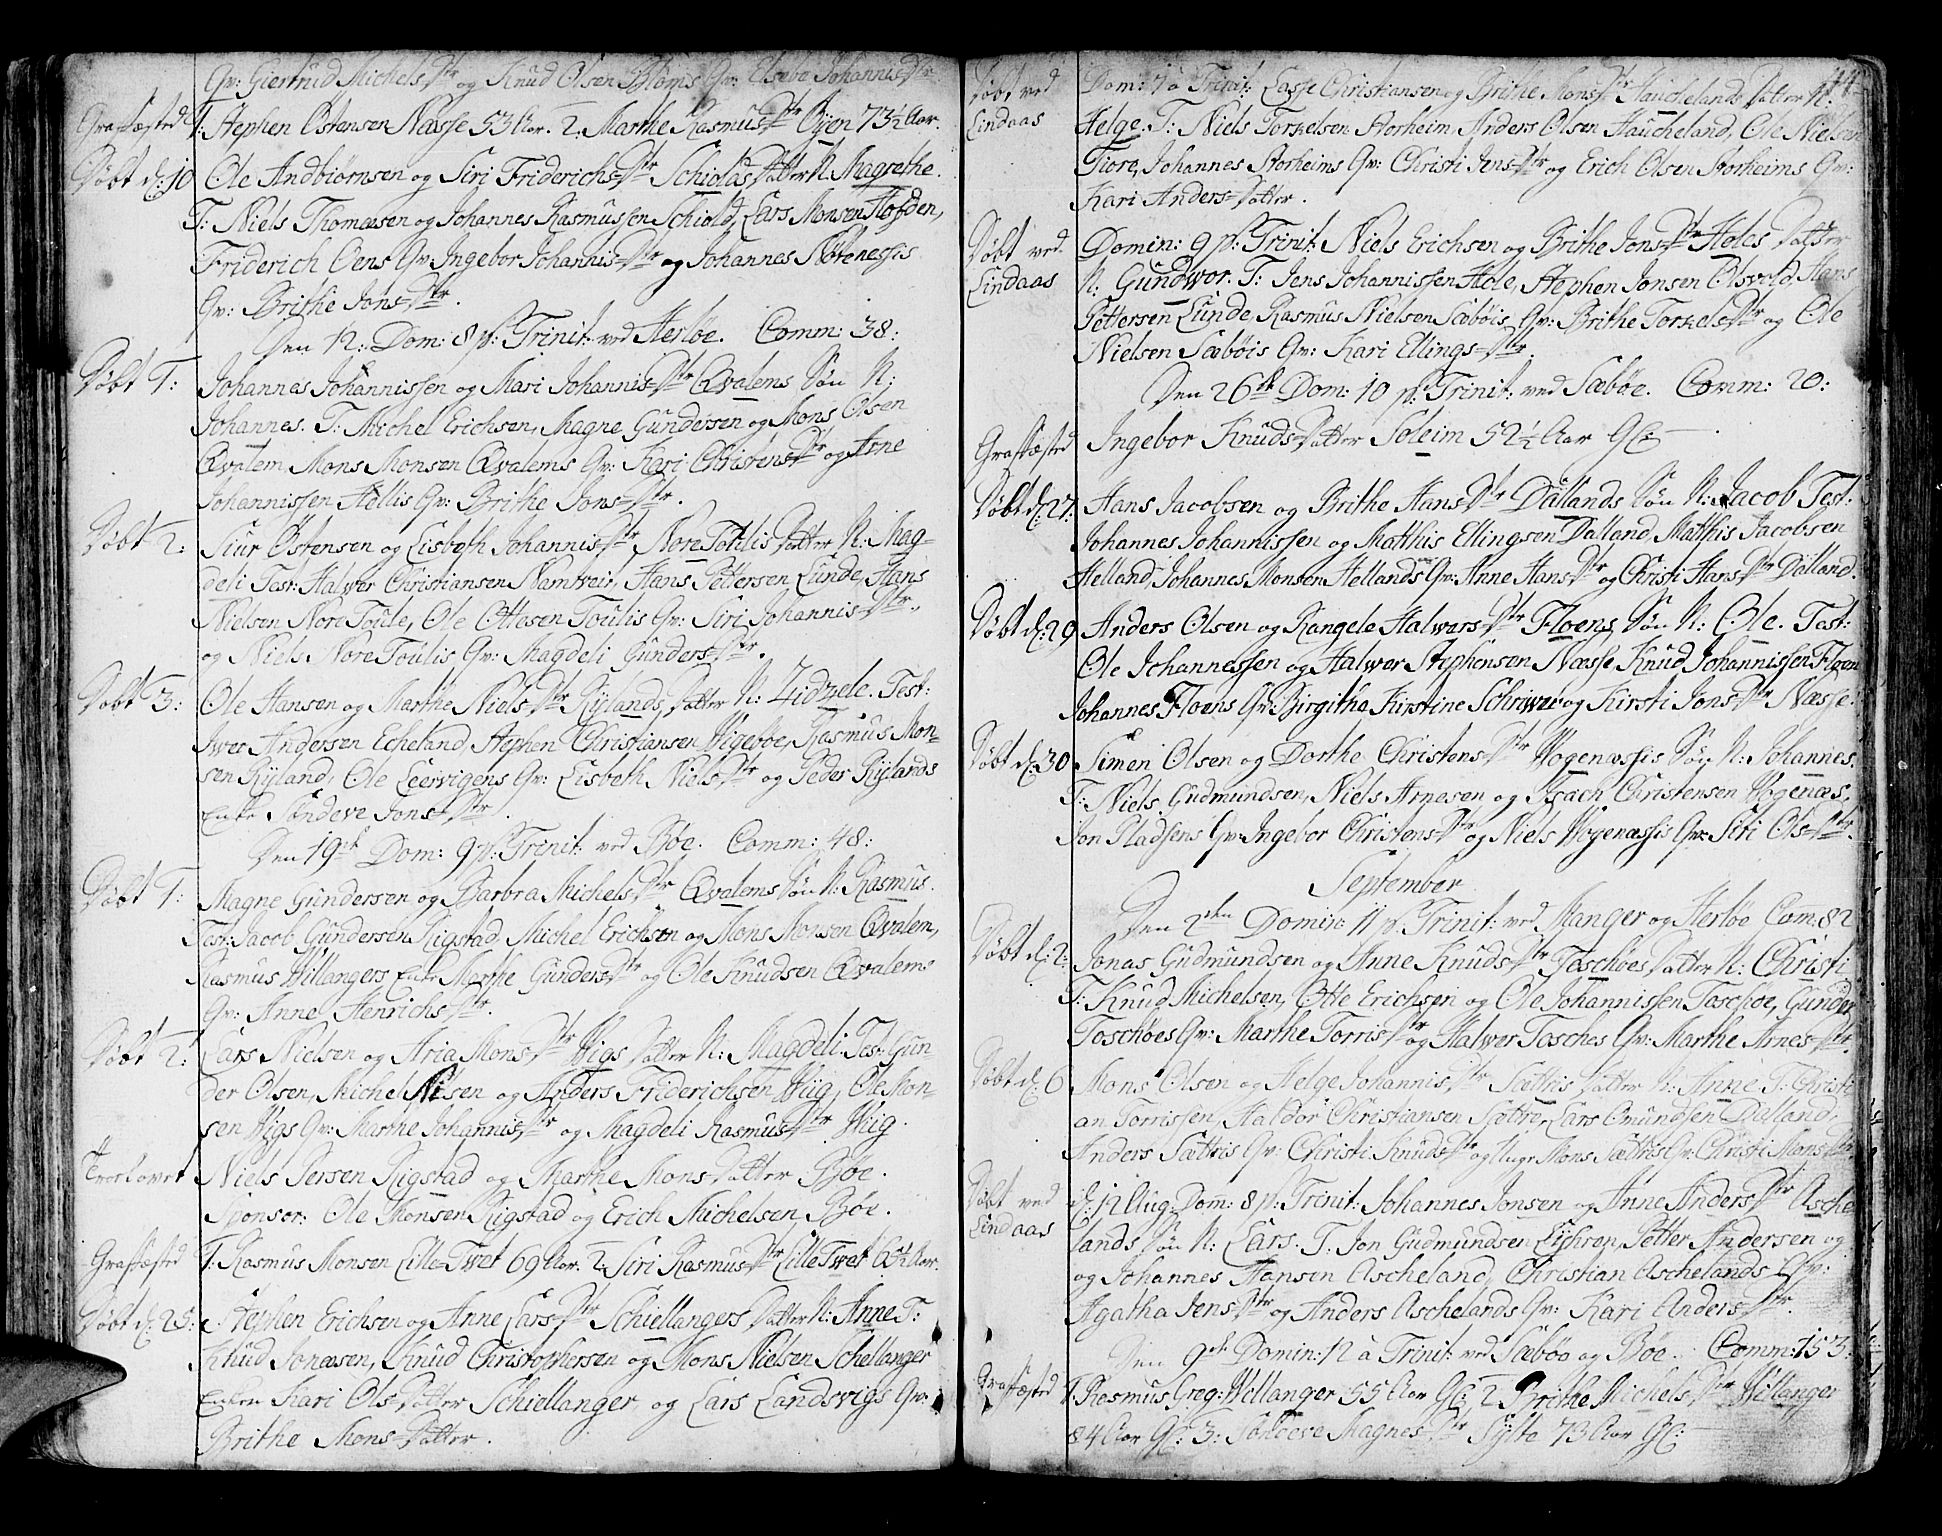 Qv: Giertrud Michels Dtr og Knud Olsen Bloms Qv: Elsebe Johannis Dtr
Graffæsted 1. Stephen Ostensen Næsse 53 Aar. 2, Marthe Rasmus Dtr Öyen 73½ Aar.
Döbt d. 10 Ole Andbiörnsen og Siri Friderichs Dtr Schiolds Datter N. Magrethe.
T: Niels Thomæsen og Johannes Rasmussen Schiold, Lars Monsen Hofden,
Friderich Oens Qv: Ingebor Johannis Dtr og Johannes Nötenessis
Qv: Brithe Jons Dtr.
Den 12: Dom: 8 p. Trinit: ved Herlöe. Comm: 38:
Döbt 1: Johannes Johannissen og Mari Johannis Dtr Qvalems Sön N:
Johannes. T: Michel Erichsen, Magne Gundersen og Mons Olsen
Qvalem, Mons Monsen Qvalems Qv: Kari Christens Dtr og Arne
Johannissen Hellis Qv: Brithe Jons Dtr.
Döbt 2: Siur Ostensen og Lisbeth Johannis Dtr Nore Toulis Datter N: Mag-
deli Test: Halwer Christiansen Namtveit, Hans Pettersen Lunde, Hans
Nielsen Nore Toule, Ole Ottesen Toulis Qv: Siri Johannis Dtr,
og Niels Nore Toulis Qv: Magdeli Gunders Dtr.
Döbt 3: Ole Hansen og Marthe Niels Dtr Rylands Datter N: Zidzele. Test:
Iwer Andersen Echeland, Stephen Christiansen Wigeböe, Rasmus Mon-
sen Ryland, Ole Leervigens Qv: Lisbeth Niels Dtr og Peder Rylands
Enke Söndeve Jons Dtr.
Den 19de Dom: 9 p. Trinit: ved Böe. Comm: 48:
Döbt 1: Magne Gundersen og Barbra Michels Dtr Qvalems Sön N: Rasmus.
Test: Jacob Gundersen Rigstad, Michel Erichsen og Mons Monsen Qvalem,
Rasmus Willangers Enke Marthe Gunders Dtr og Ole Knudsen Qvalems
Qv: Anne Henrichs Dtr.
Döbt 2: Lars Nielsen og Aria Mons Dtr Wigs Datter N: Magdeli. Test: Gun-
der Olsen, Michel Nilsen og Anders Friderichsen Wiig, Ole Mon-
sen Wigs Qv: Marthe Johannis Dtr og Magdeli Rasmus Dtr Wiig.
Troelovet Niels Persen Rigstad og Marthe Mons Datter Böe.
Sponsor: Ole Monsen Rigstad og Erich Michelsen Böe.
Graffæsted 1. Rasmus Monsen Lille Twet 69 Aar. 2. Siri Rasmus Dtr Lille Twet Aar.
Döbt d. 25: Stephen Erichsen og Anne Lars Dtr Schiellangers Datter N: Anne T:
Knud Jonæsen, Knud Christophersen og Mons Nielsen Schellanger
Enken Kari Ols Datter Schiellanger, og Lars Landsvigs Qv:
Brithe Mons Datter.
Döbt ved Dom: 7 a Trinit: Lasse Christiansen og Brithe Mons Dtr Hauchelands Datter N:
Lindaas Helge. T: Niels Torkelsen Storheim, Anders Olsen Haucheland, Ole Nielsen
Fiore, Johannes Storheims Qv: Christi Jens Dtr og Erich Olsen Storheims Qv:
Kari Anders Datter.
Döbt ved Domin: 9 p: Trinit: Niels Erichsen og Brithe Jons Dtr Holes Datter
Lindaas N: Gundwor. T: Jens Johannissen Hole, Stephen Jonsen Olsvold, Hans
Pettersen Lunde, Rasmus Nielsen Sæböis Qv: Brithe Torkels Dtr og Ole
Nielsen Sæböis Qv: Kari Ellings Dtr.
Den 26de Dom: 10 p: Trinit: ved Sæböe. Comm: 20:
Graffæsted Ingebor Knuds Datter Soleim 52¼ Aar G:
Döbt d. 27: Hans Jacobsen og Brithe Hans Dtr Dallands Sön N: Jacob Test:
Johannes Johannissen og Matthis Ellingsen Dalland, Matthis Jacobsen
Helland, Johannes Monsen Hellands Qv: Anne Hans Dtr og Christi Hans Dtr Dalland.
Döbt d. 29 Anders Olsen og Rangele Halwers Dtr Floens Sön N: Ole. Test:
Ole Johannessen og Halwer Stephensen Næsse, Knud Johannissen Floen
Johannes Floens Qv: Birgitha Kirstine Schriwer og Kirsti Jons Dtr Næsse.
Döbt d. 30 Simen Olsen og Dorthe Christens Dtr Wogenæssis Sön N: Johannes.
T: Niels Gudmundsen, Niels Arnesen og Isach Christensen Wogenæs,
Jon Pladsens Qv: Ingebor Christens Dtr og Niels Wogenæssis Qv: Siri Ols Dtr.
September
Den 2den Domin: 11 p. Trinit: ved Manger og Herlöe Com: 82
Döbt d. 2: Jonas Gudmundsen og Anne Knuds Dtr Toschöes Datter N: Christi
T: Knud Michelsen, Otte Erichsen og Ole Johannissen Toschöe, Gunder
Toschöes Qv: Marthe Torris Dtr og Halwer Tosches Qv: Marthe Arnes Dtr.
Döbt d. 6 Mons Olsen og Helge Johannis Dtr Sættris Datter N: Anne T: Christi-
an Torrissen, Haldor Christiansen Sætre, Lars Omundsen Dalland,
Anders Sættris Qv: Christi Knuds Dtr og Mons Sættris Qv: Christi Mons Dtr
Döbt ved d. 12 Aug: Dom: 8 p. Trinit: Johannes Jonsen og Anne Anders Dtr Asche-
Lindaas lands Sön N: Lars. T: Jon Gudmundsen Lyhren, Petter Andersen og
og Johannes Hansen Ascheland, Christian Aschelands Qv:
Agatha Jens Dtr og Anders Aschelands Qv: Kari Anders Dtr.
Den 9de Domin: 12 a Trinit: ved Sæböe og Böe. Comm: 153:
Graffæsted 1. Rasmus Greg: Willanger 55 Aar G: 2 Brithe Michels Dtr Willanger
84 Aar G: 3: Söndeve Magnes Dtr Sylte 73 Aar G: